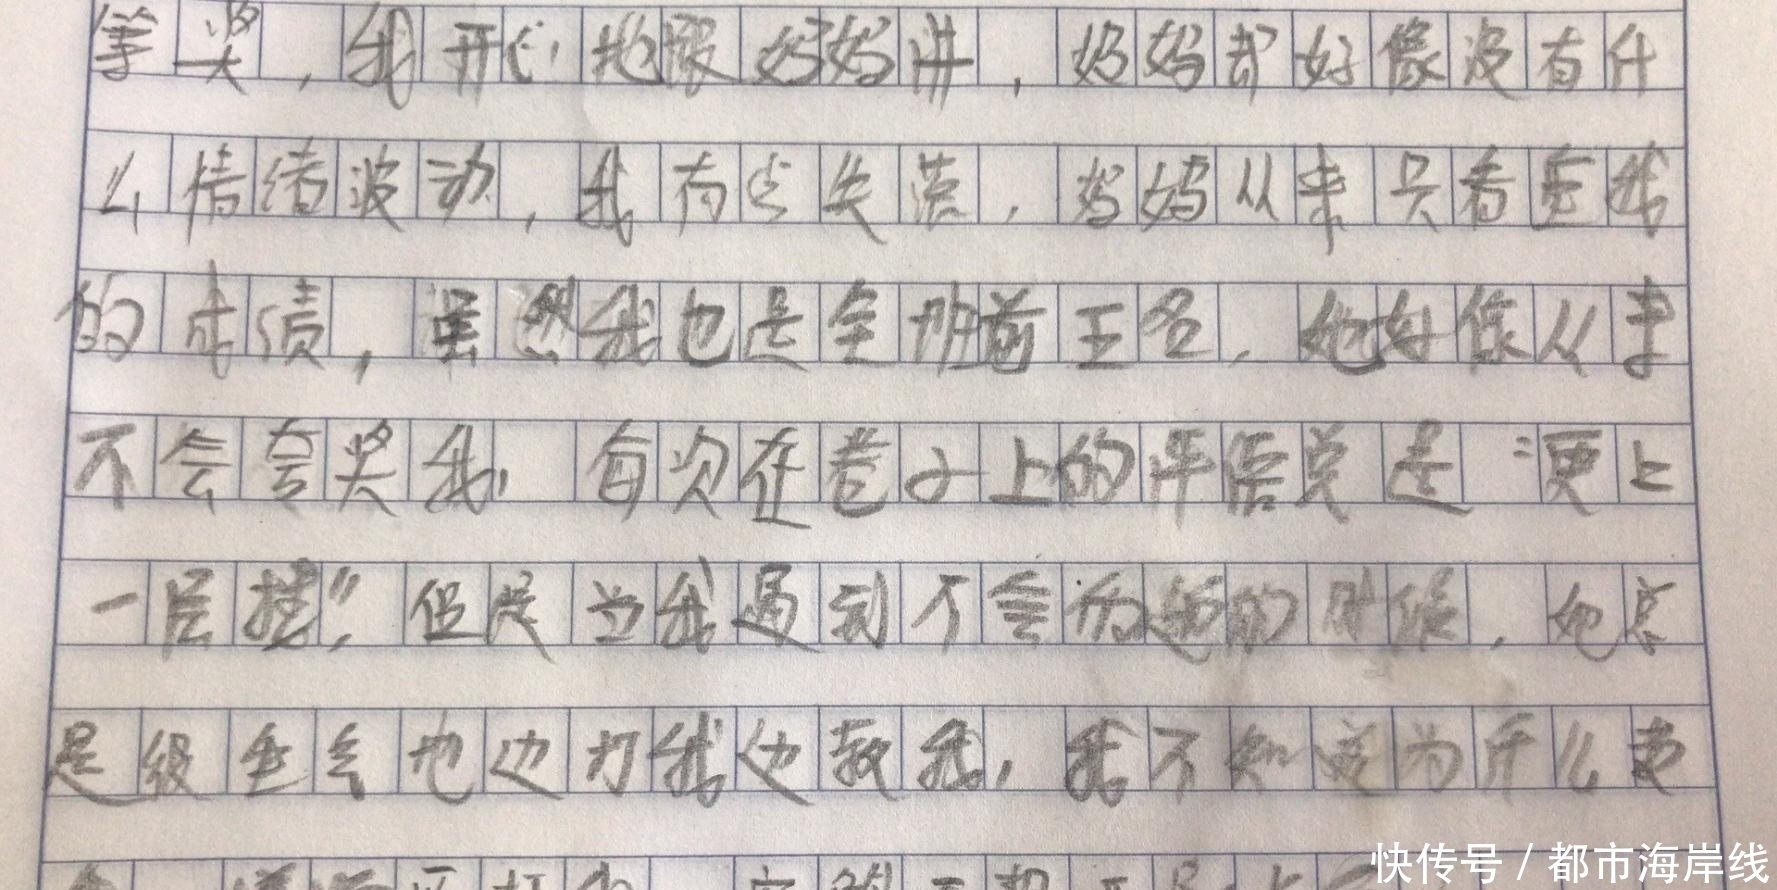 等奖，我开心地跟妈妈讲，妈妈却好像没有什
么情绪波动，我有点失落，妈妈从来只看重我
的成绩，虽然我也是全班前五名，她好像从来
不会夸奖我，每次在卷子上的评语总是“更上
一层楼”，但是当我遇到不会的题的时候，她总
是很生气地边打我边教我，我不知道为什么要
快传号 / 都市海岸线